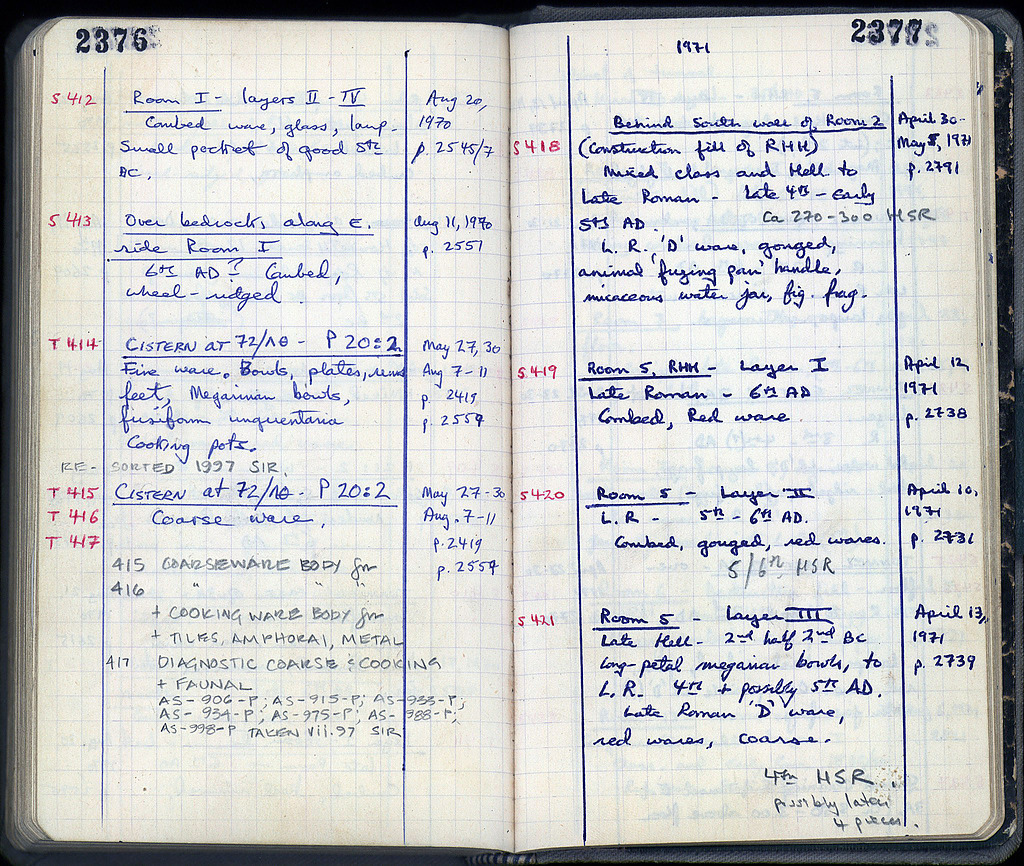 2376
S 412 Room I - layers II - IV Aug 20,
Combed ware, glass, lamp. 1970
Small pocket of good 5th p. 2545/7
BC.
S 413 Over bedrock along E. Aug 11, 1970
side Room I p. 2551
6th AD? Combed,
wheel-ridged.
T 414 CISTERN AT 72/ΛΘ - P 20:2 May 27, 30
Fine ware. Bowls, plates, rims Aug 7-11
feet, Megarian bowls, p. 2419
fusiform unguentaria p. 2554
Cooking pots.
RE-SORTED 1997 SIR.
T 415 CISTERN at 72/ΛΘ - P 20:2 May 27-30
T 416 Coarse ware. Aug. 7-11
T 417 p. 2419
415 COARSEWARE BODY frr p. 2554
416 " " "
+ COOKING WARE BODY frr
+ TILES, AMPHORAI, METAL
417 DIAGNOSTIC COARSE & COOKING
+ FAUNAL
AS-906-P; AS-915-P; AS-933-P;
AS-934-P; AS-975-P; AS-988-P;
AS-998-P TAKEN vii.97 SIR
2377
1971
Behind South wall of Room 2 April 30-
S 418 (Construction fill of RHH) May 5, 1971
Mixed class and Hell to p. 2791
Late Roman - Late 4th - Early
5th AD. Ca 270-300 HSR
L. R. 'D' ware, gouged,
animal 'frying pan' handle,
micaceous water jar, fig. frag.
S 419 Room 5, RHH - Layer I April 12,
Late Roman - 6th AD 1971
Combed, Red ware. p. 2738
S 420 Room 5 - Layer II April 10,
L.R - 5th - 6th AD. 1971
Combed, gouged, red wares. p. 2731
5/6th HSR
S 421 Room 5 - Layer III April 13,
Late Hell - 2nd half 2nd BC 1971
long-petal megarian bowls, to p. 2739
L.R. 4th + possibly 5th AD.
Late Roman 'D' ware,
red wares, coarse.
4th HSR
possibly later
4 pieces.